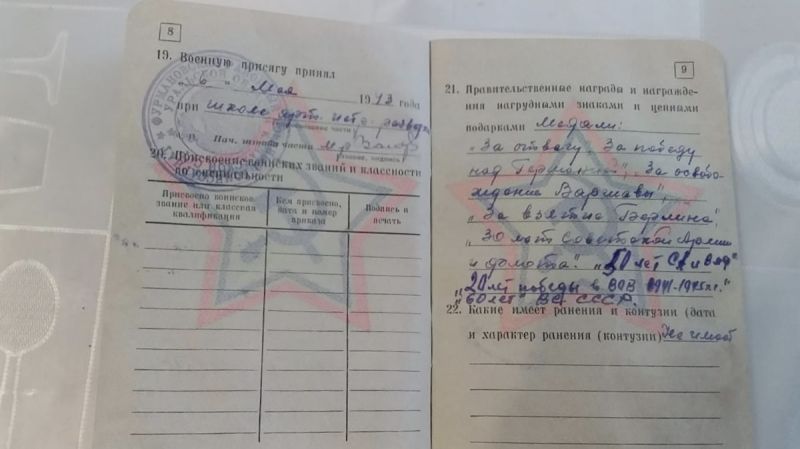 8
19. Военную присягу принял
"6" Мая 1943 года
при школе арт. инст. развед
Нач. штаба части м-р
20. Присвоение воинских званий и классность
по специальности
Присвоено воинское звание или классная квалификация
Кем присвоено, дата и номер приказа
Подпись и печать
ФУРМАНОВСКИЙ
УРАЛЬСКОЙ
9
21. Правительственные награды и награжде-
ния нагрудными знаками и ценными
подарками Медали:
"За отвагу" За победу
над Германией", "За освобо-
ждение Варшавы",
"За взятие Берлина",
"30 лет Советской Армии
и флота". "50 лет СА и ВМФ"
"20 лет победы в ВОВ 1941-1945г.г."
"60 лет" ВС СССР.
22. Какие имеет ранения и контузии (дата
и характер ранения (контузии) Не имеет